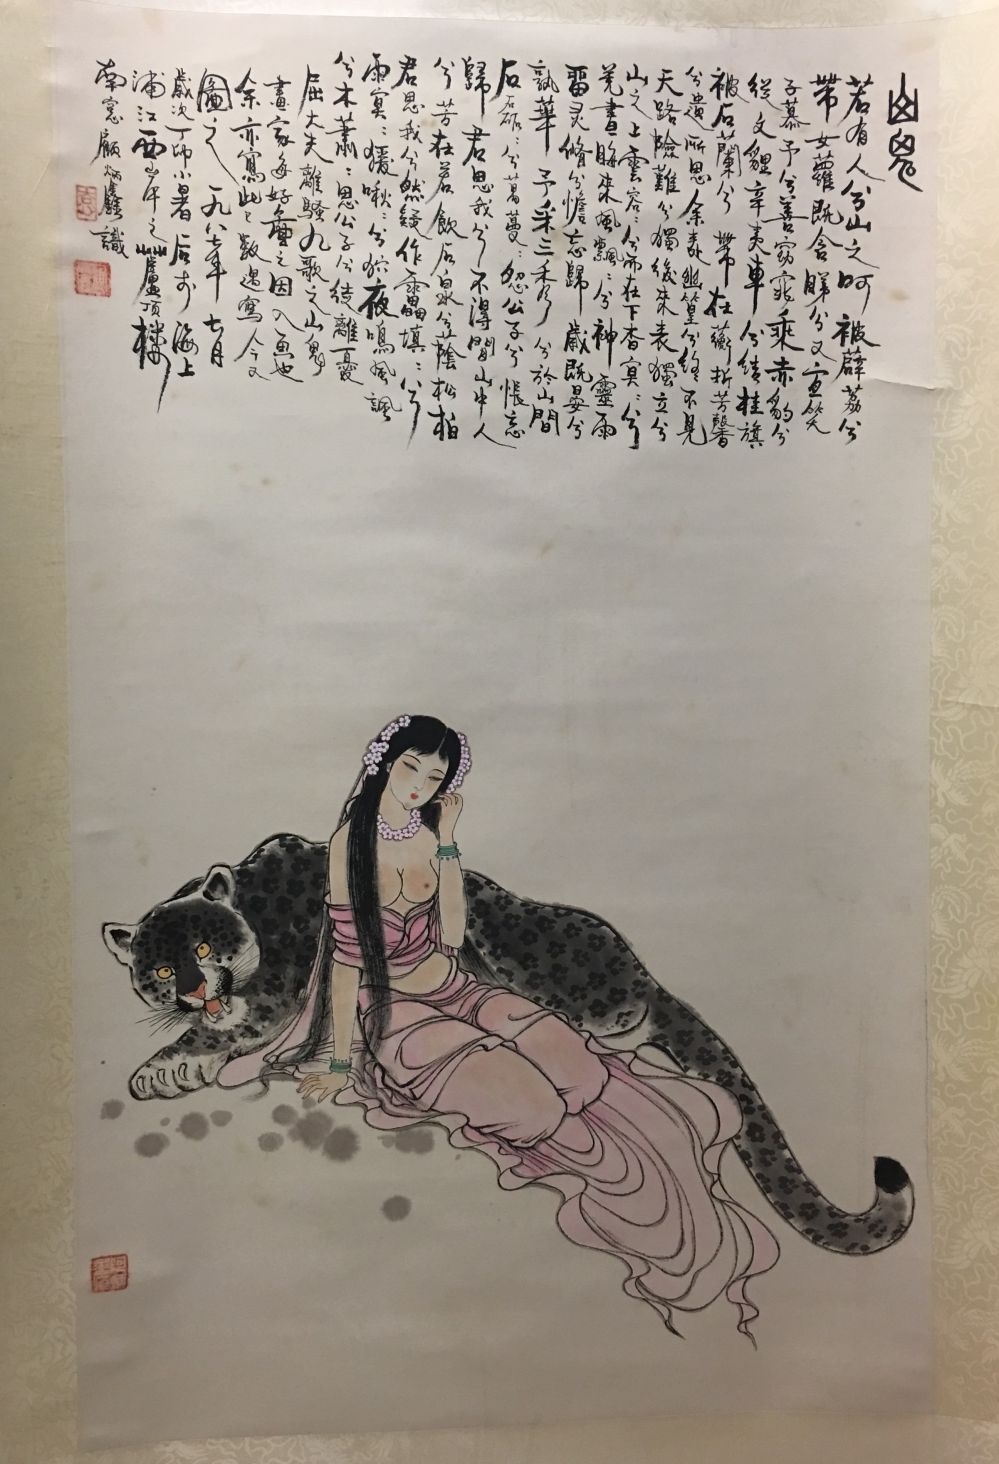 山鬼
若有人兮山之阿被薜荔兮
帶女蘿既含睇兮又宜笑
子慕予兮善窈窕乘赤豹兮
從文貍辛夷車兮結桂旗
被石蘭兮帶杜衡折芳馨
兮遺所思余處幽篁兮終不見
天路險難兮獨後來表獨立兮
山之上雲容〻兮而在下杳冥〻兮
羌晝晦東風飄〻兮神靈雨
留灵脩兮憺忘歸歲既晏兮
孰華予采三秀兮於山間
石磊〻兮葛蔓〻怨公子兮悵忘
歸君思我兮不得閒山中人
兮芳杜若飲石泉兮蔭松柏
君思我兮然疑作靁填〻兮
雨冥〻猨啾〻兮狖夜鳴風諷
兮木蕭〻思公子兮徒離憂
屈大夫離騷九歌之山鬼
畫家每好畫之因入魚也
余亦寫此已數過寫今又
圖之一九八七年七月
歲次丁卯小暑后于海上
浦江西岸之蘆頂樓
南窓顧炳鑫識